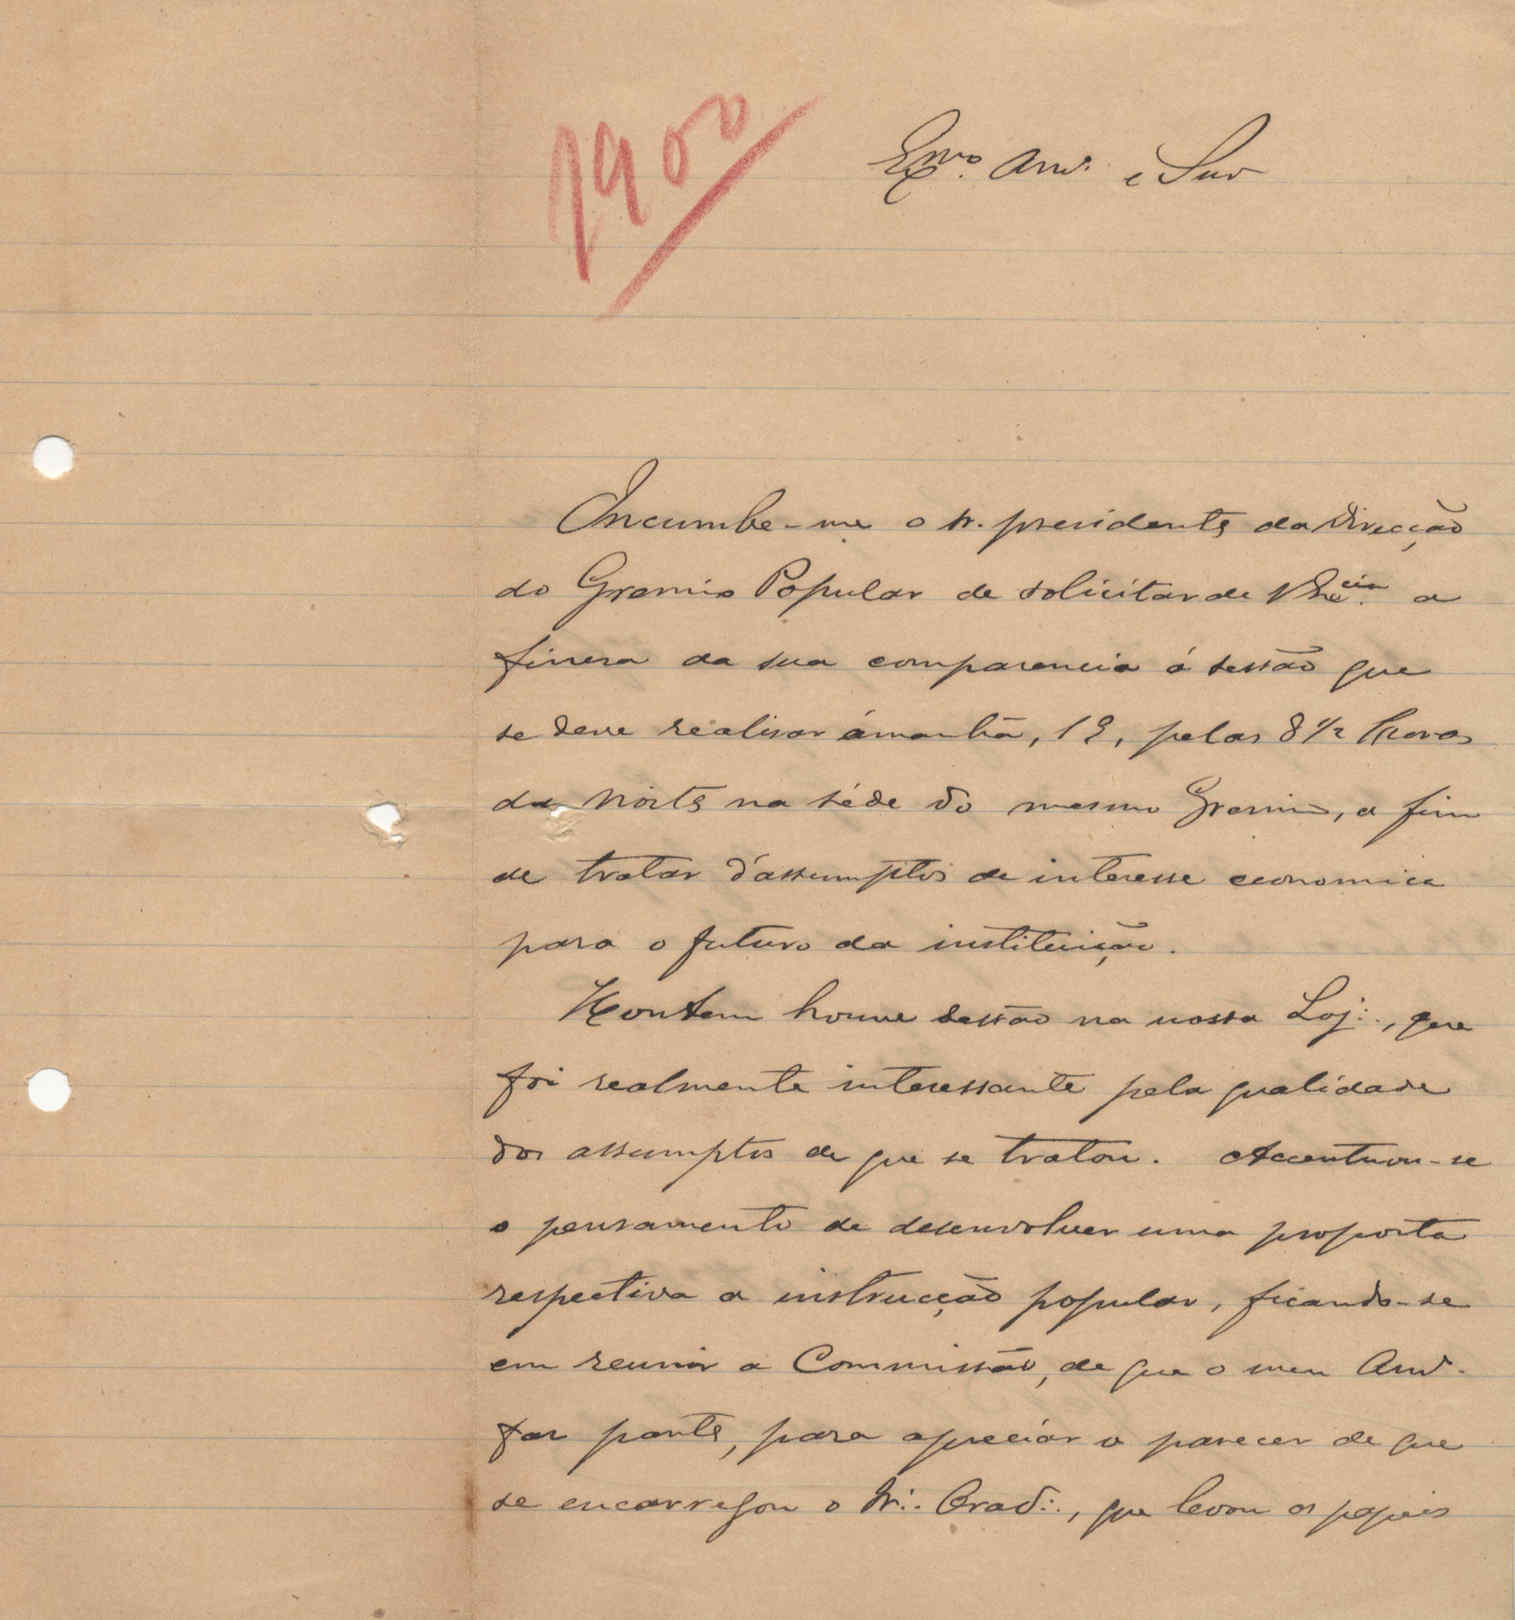 1900
Exmo. Amo. e Snr
Incumbe-me o sr. presidente da Direcção
do Gremio Popular de solicitar de V Excia. a
fineza da sua comparencia á sessão que
se deve realisar ámanhã, 19, pelas 8 1/2 horas
da noite na séde do mesmo Gremio, a fim
de tratar d'assumptos de interesse economico
para o futuro da instituição.
Hontem houve sessão na nossa Loj∴, que
foi realmente interessante pela qualidade
dos assumptos de que se tratou. Accentuou-se
o pensamento de desenvolver uma proposta
respectiva a instrucção popular, ficando-se
em reunir a Commissão, de que o meu Amo.
faz parte, para apreciar o parecer de que
se encarregou o Ir∴ Orad∴, que levou os papeis